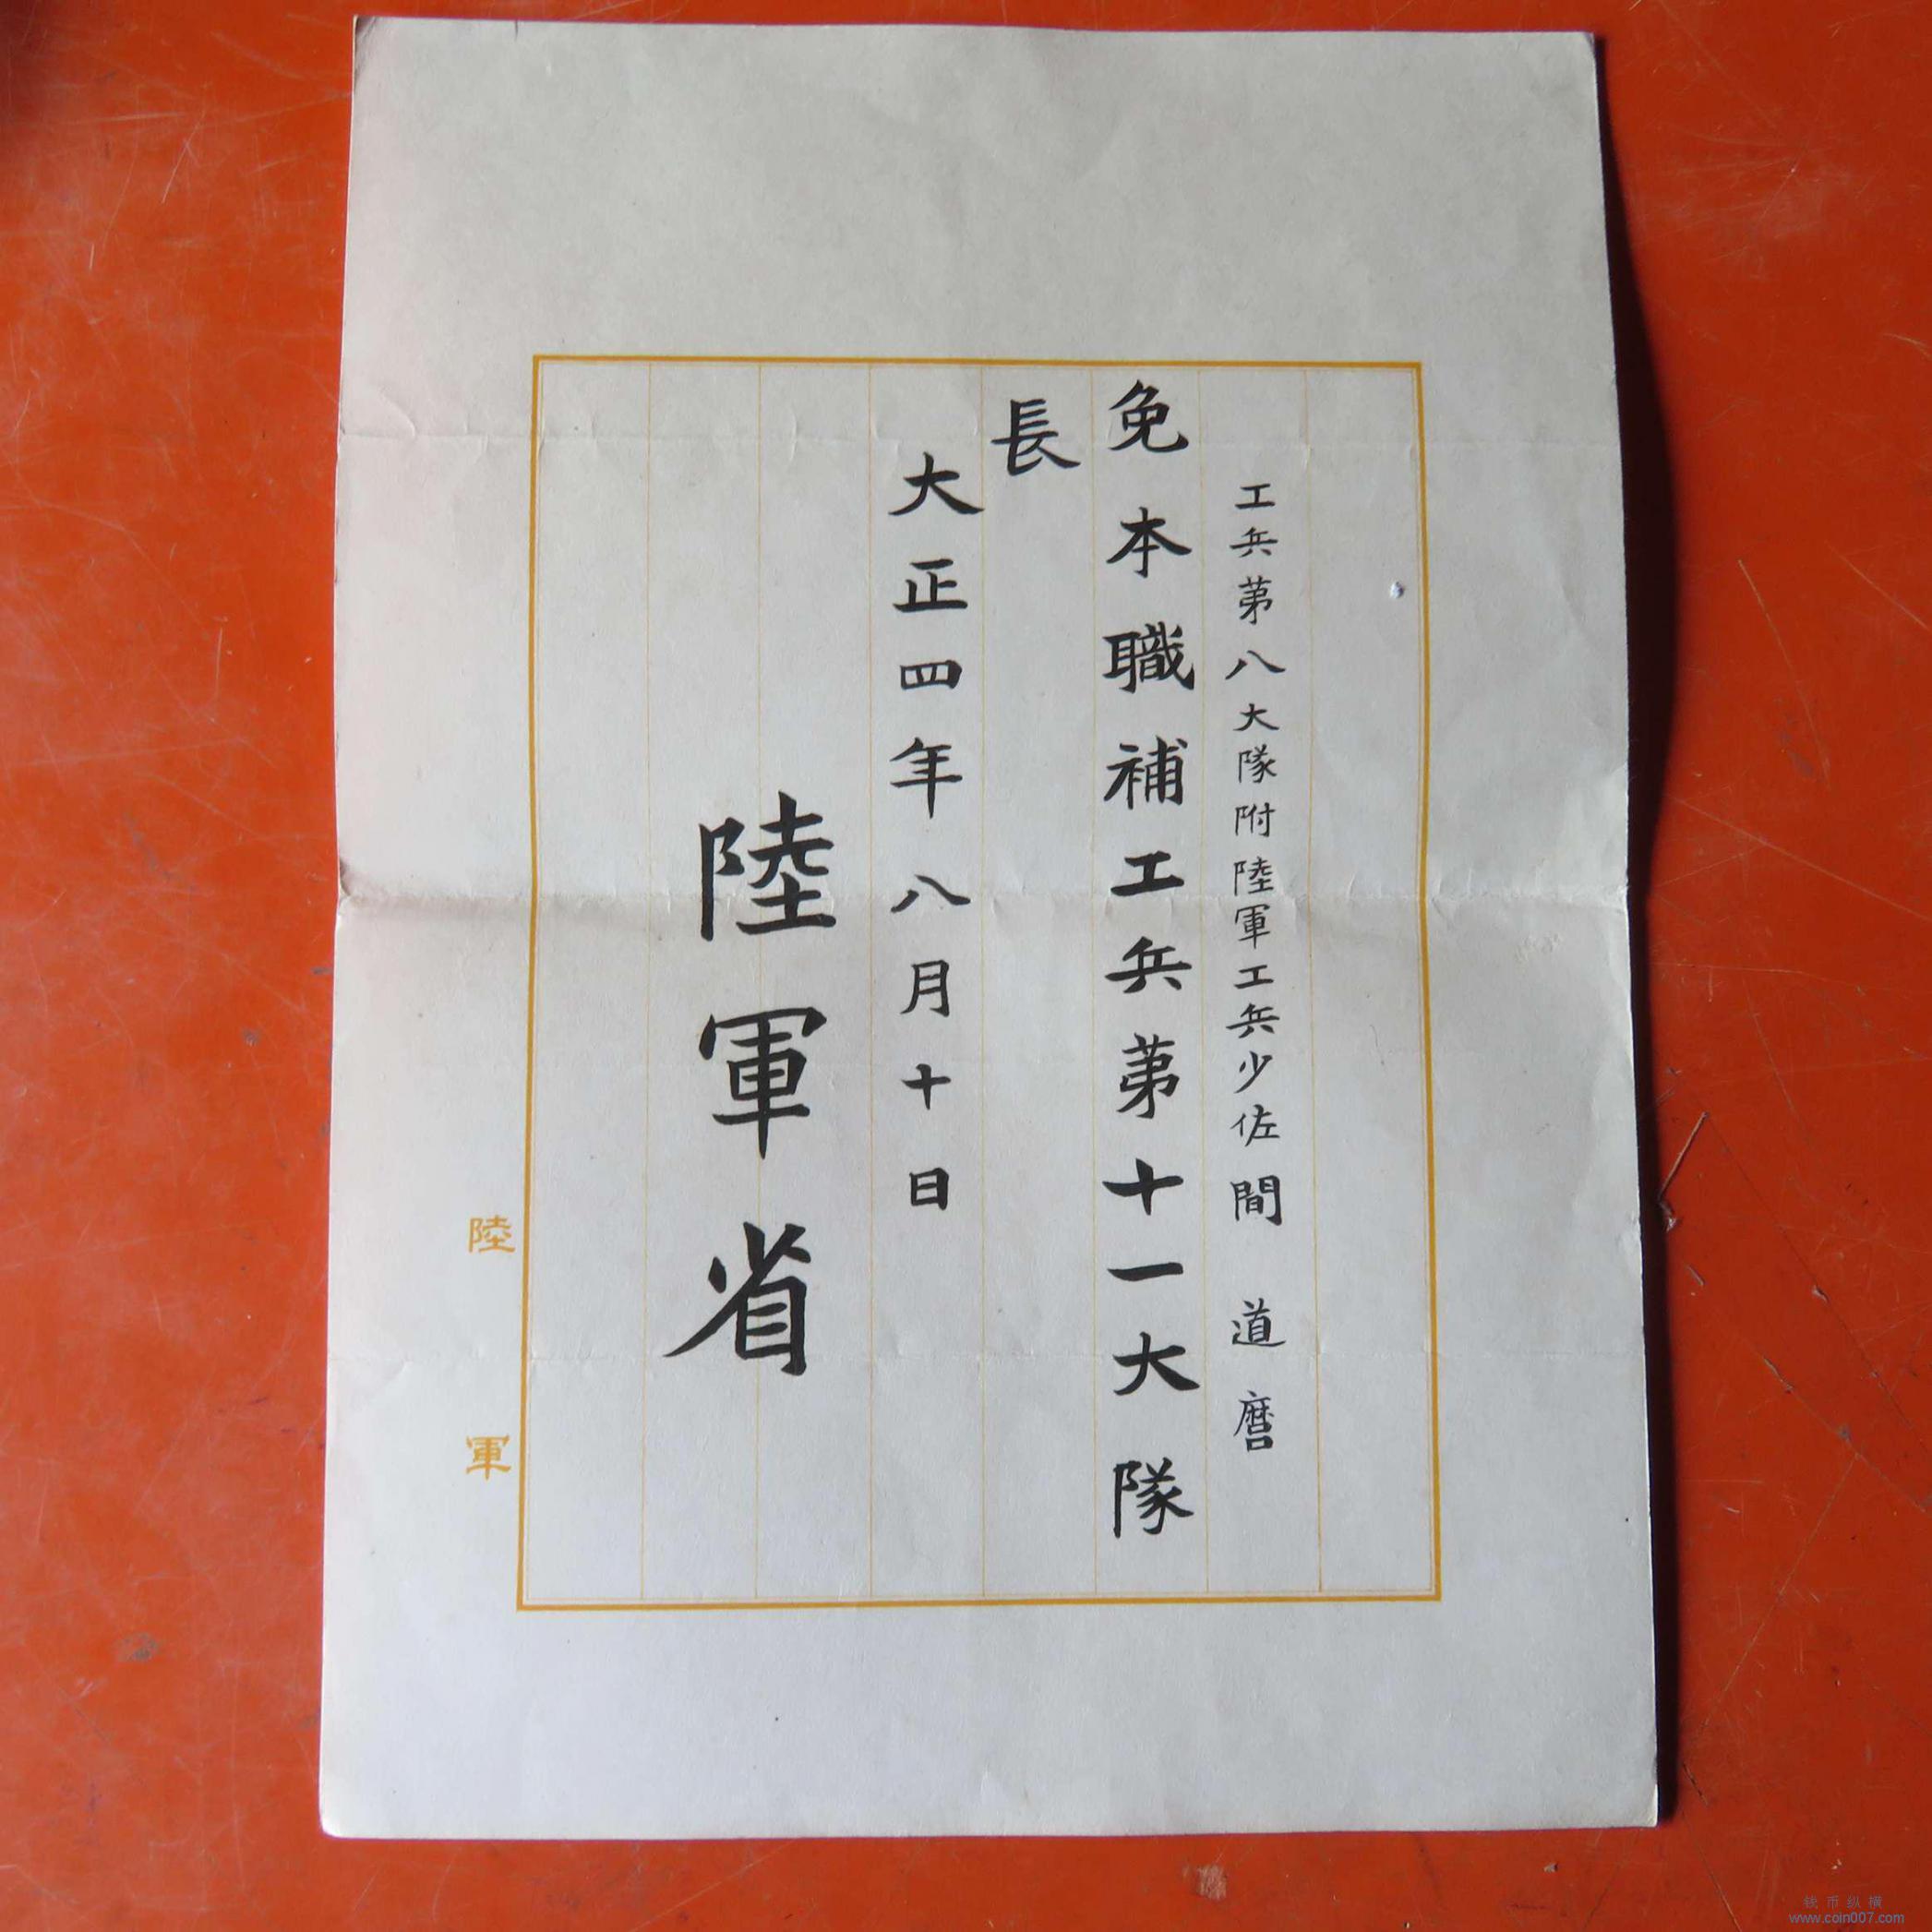 工兵第八大隊附陸軍工兵少佐間 道麿
免本職補工兵第十一大隊
長
大正四年八月十日
陸軍省
陸軍
钱币纵横
www.coin007.com